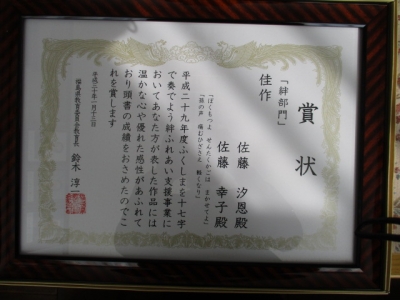 賞状
「絆部門」
佳作
佐藤 汐恩殿
佐藤 幸子殿
「ぼくもつよ せんたくかごは まかせてよ」
「孫の声 痛むひざさえ 軽くなり」
平成二十九年度ふくしまを十七字
で奏でよう絆ふれあい支援事業に
おいてあなた方が表した作品には
温かな心や優れた感性があふれて
おり頭書の成績をおさめたのでこ
れを賞します
平成三十年一月十三日
福島県教育委員会教育長 鈴木 淳一